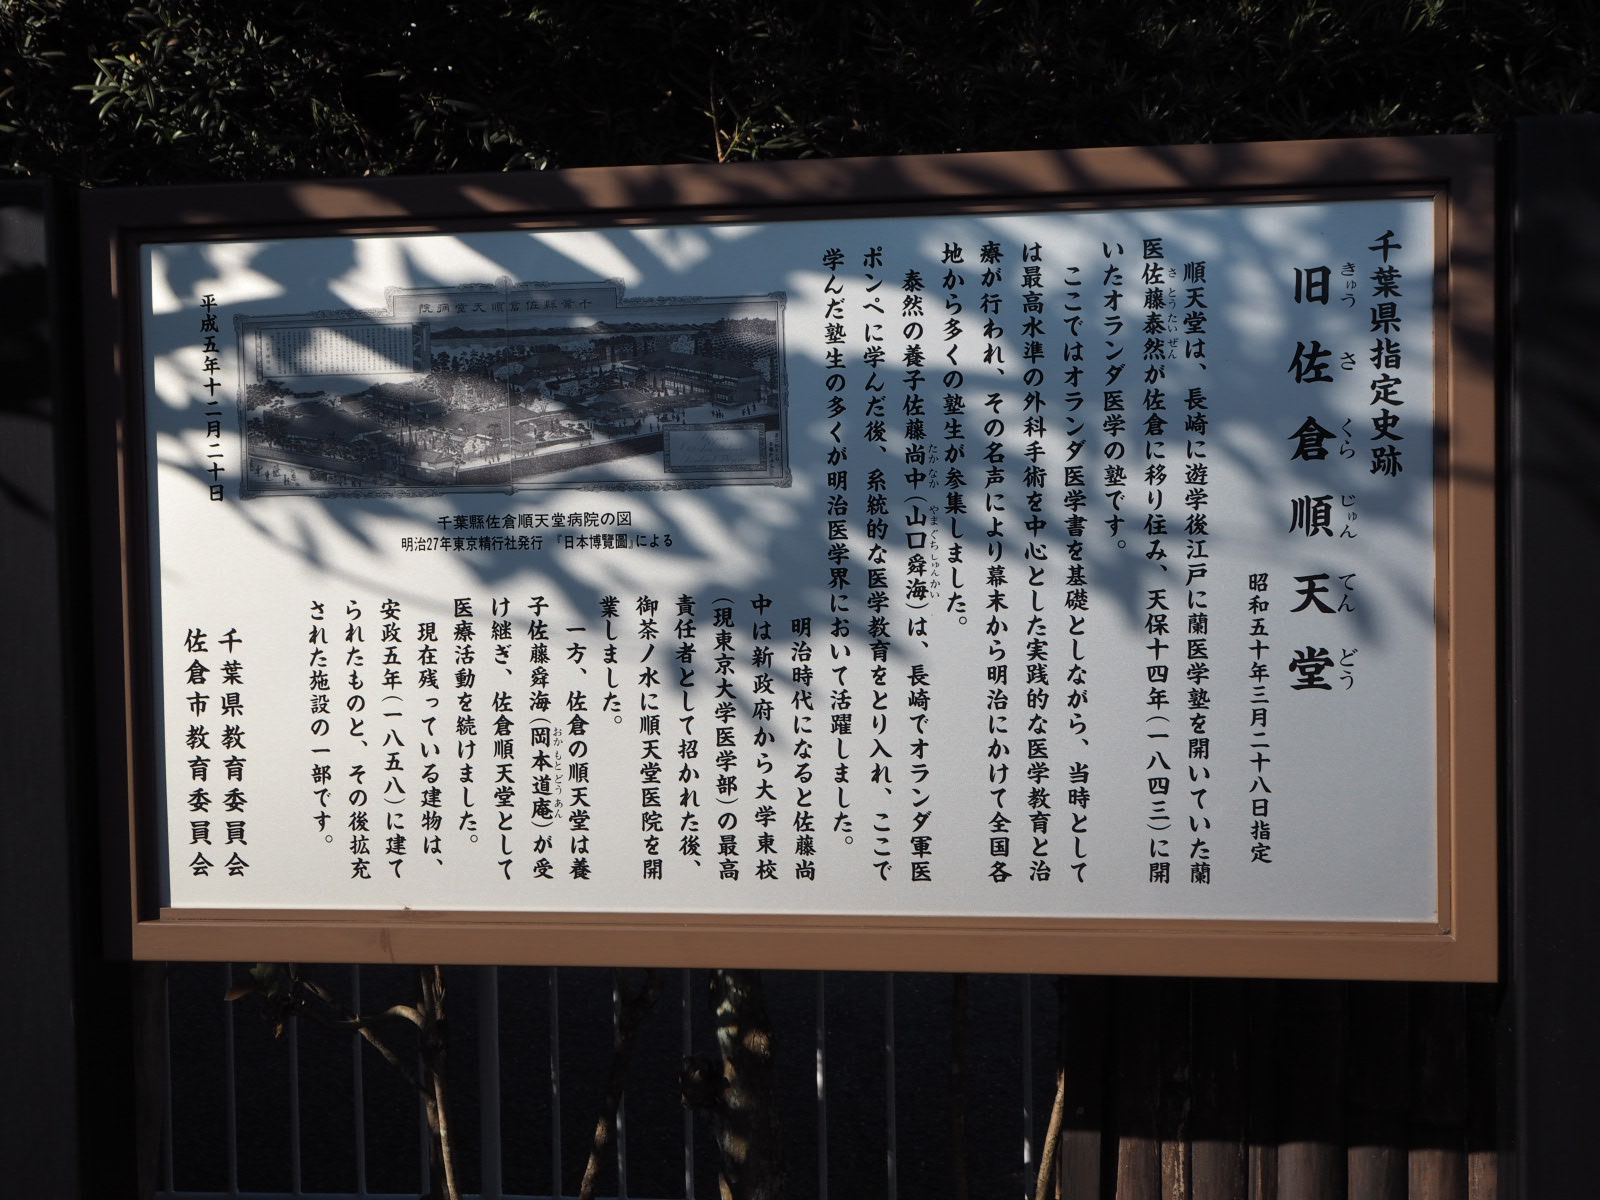 千葉県指定史跡
旧佐倉順天堂
きゅう さ くら じゅん てん どう
昭和五十年三月二十八日指定
順天堂は、長崎に遊学後江戸に蘭医学塾を開いていた蘭
医佐藤泰然が佐倉に移り住み、天保十四年(一八四三)に開
さ とう たい ぜん
いたオランダ医学の塾です。
ここではオランダ医学書を基礎としながら、当時として
は最高水準の外科手術を中心とした実践的な医学教育と治
療が行われ、その名声により幕末から明治にかけて全国各
地から多くの塾生が参集しました。
泰然の養子佐藤尚中(山口舜海)は、長崎でオランダ軍医
たか なか やま ぐち しゅん かい
ポンペに学んだ後、系統的な医学教育をとり入れ、ここで
学んだ塾生の多くが明治医学界において活躍しました。
明治時代になると佐藤尚
中は新政府から大学東校
(現東京大学医学部)の最高
責任者として招かれた後、
御茶ノ水に順天堂医院を開
業しました。
一方、佐倉の順天堂は養
子佐藤舜海(岡本道庵)が受
おか もと どう あん
け継ぎ、佐倉順天堂として
医療活動を続けました。
現在残っている建物は、
安政五年(一八五八)に建て
られたものと、その後拡充
された施設の一部です。
千葉県教育委員会
佐倉市教育委員会
千葉縣佐倉順天堂病院
千葉縣佐倉順天堂病院の図
明治27年東京精行社発行 『日本博覽圖』による
平成五年十二月二十日